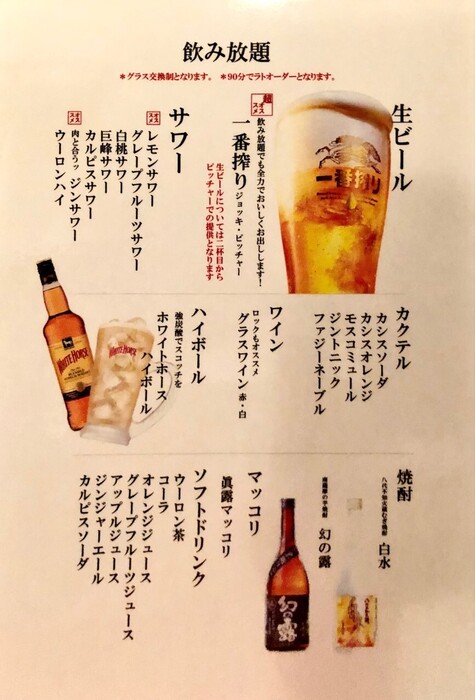 飲み放題
＊グラス交換制となります。 ＊90分でラトオーダーとなります。
生ビール
超オススメ
飲み放題でも全力でおいしくお出しします!
一番搾り ジョッキ・ピッチャー
生ビールについては二杯目から
ピッチャーでの提供となります
一番搾り
サワー
オススメ
レモンサワー
グレープフルーツサワー
白桃サワー
巨峰サワー
カルピスサワー
オススメ
肉と合うッ ジンサワー
ウーロンハイ
カクテル
カシスソーダ
カシスオレンジ
モスコミュール
ジントニック
ファジーネーブル
ワイン
ロックもオススメ
グラスワイン 赤・白
ハイボール
強炭酸でスコッチを
ホワイトホース
ハイボール
WHITE HORSE
WHITE HORSE
焼酎
白水
幻の露
幻の露
マッコリ
眞露マッコリ
ソフトドリンク
ウーロン茶
コーラ
オレンジジュース
グレープフルーツジュース
アップルジュース
ジンジャーエール
カルピスソーダ